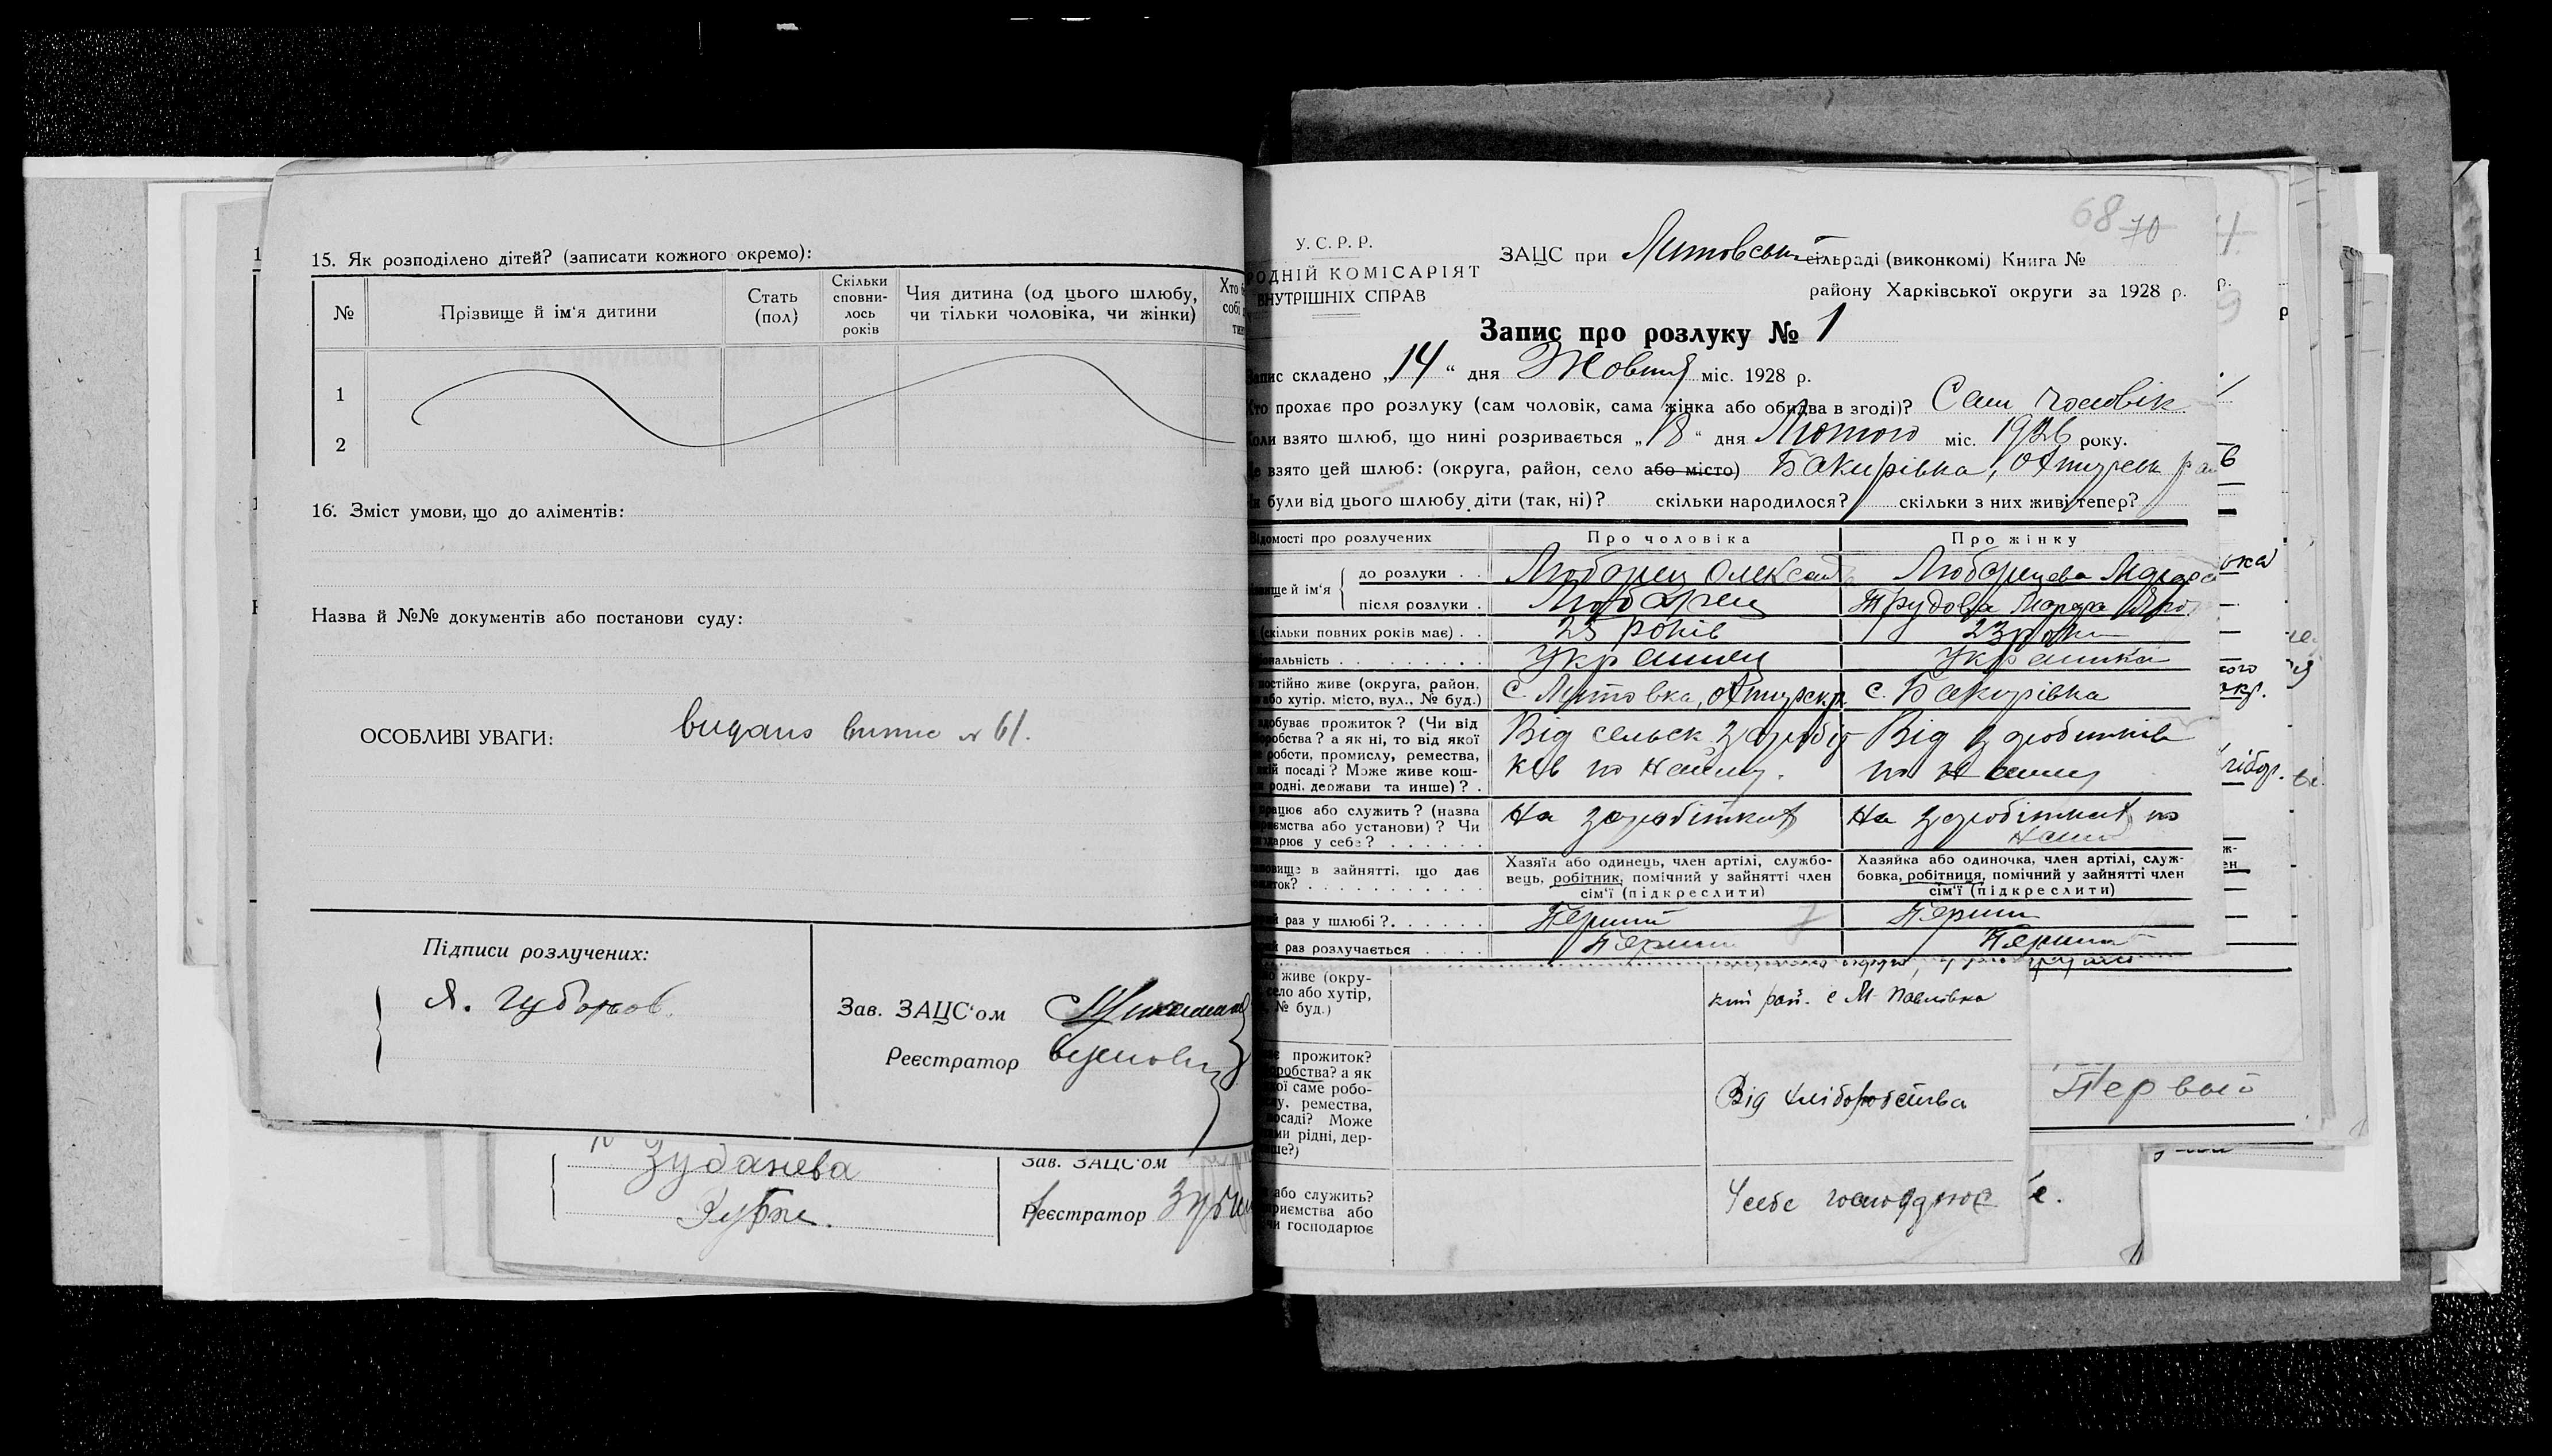 15. Як розподілено дітей? (записати кожного окремо):
№
Прізвище й ім'я дитини
Стать (пол)
Скільки сповни-
лось
років
Чия дитина (од цього шлюбу,
чи тільки чоловіка, чи жінки)
Хто
собі
1
2
16. Зміст умови, що до аліментів:
Назва й №№ документів або постанови суду:
ОСОБЛИВІ УВАГИ:
видано випис № 61.
Підписи розлучених:
Я. Губарєв
Зав. ЗАЦС'ом
Реєстратор
Зуданева
Зав. ЗАЦС'ом
Реєстратор
68 70
У. С. Р. Р.
РОДНІЙ КОМІСАРІЯТ
ВНУТРІШНІХ СПРАВ
ЗАЦС при Литовськ сільраді (виконкомі) Книга №
району Харківської округи за 1928 р.
Запис про розлуку № 1
Запис складено „14“ дня Жовтня міс. 1928 р.
Хто прохає про розлуку (сам чоловік, сама жінка або обидва в згоді)? Сам чоловік
Коли взято шлюб, що нині розривається „18“ дня Лютого міс. 1926 року.
Де взято цей шлюб: (округа, район, село або місто) Бакирівка, Охтирськ ра
Чи були від цього шлюбу діти (так, ні)? скільки народилося? скільки з них живі тепер?
Відомості про розлучених
Про чоловіка
Про жінку
до розлуки . .
Любарец Олексан
Любарцева Марфа
звище й ім'я
після розлуки .
Любарец
Трудова Марфа
(скільки повних років має) . .
25 років
23 роки
ональність . . . . . . . . .
Українец
Українка
постійно живе (округа, район,
або хутір, місто, вул., № буд.)
с. Литовка, Охтирск р.
с. Бакирівка
здобуває прожиток? (Чи від
оробства? а як ні, то від якої
роботи, промислу, ремества,
якій посаді? Може живе кош-
родні, держави та инше)? .
Від сельск. заробіт
ків по найму.
Від заробітків
по найму
працює або служить? (назва
приємства або установи)? Чи
одарює у себе? . . . . . .
На заробітках
На заробітках по
найм
ановище в зайнятті, що дає
житок? . . . . . . . . . . .
Хазяїн або одинець, член артілі, службо-
вець, робітник, помічний у зайнятті член
сім'ї (підкреслити)
Хазяйка або одиночка, член артілі, служ-
бовка, робітниця, помічний у зайнятті член
сім'ї (підкреслити)
раз у шлюбі?. . . . . .
Перший
Перши
раз розлучається . . . .
Перший
Перший
живе (окру-
село або хутір,
№ буд.)
кий рай. с М. Павлівка
прожиток?
оробства? а як
ої саме робо-
у, ремества,
посаді? Може
ми рідні, дер-
ше?)
Від хліборобства
Первый
або служить?
приємства або
чи господарює
У себе господарює